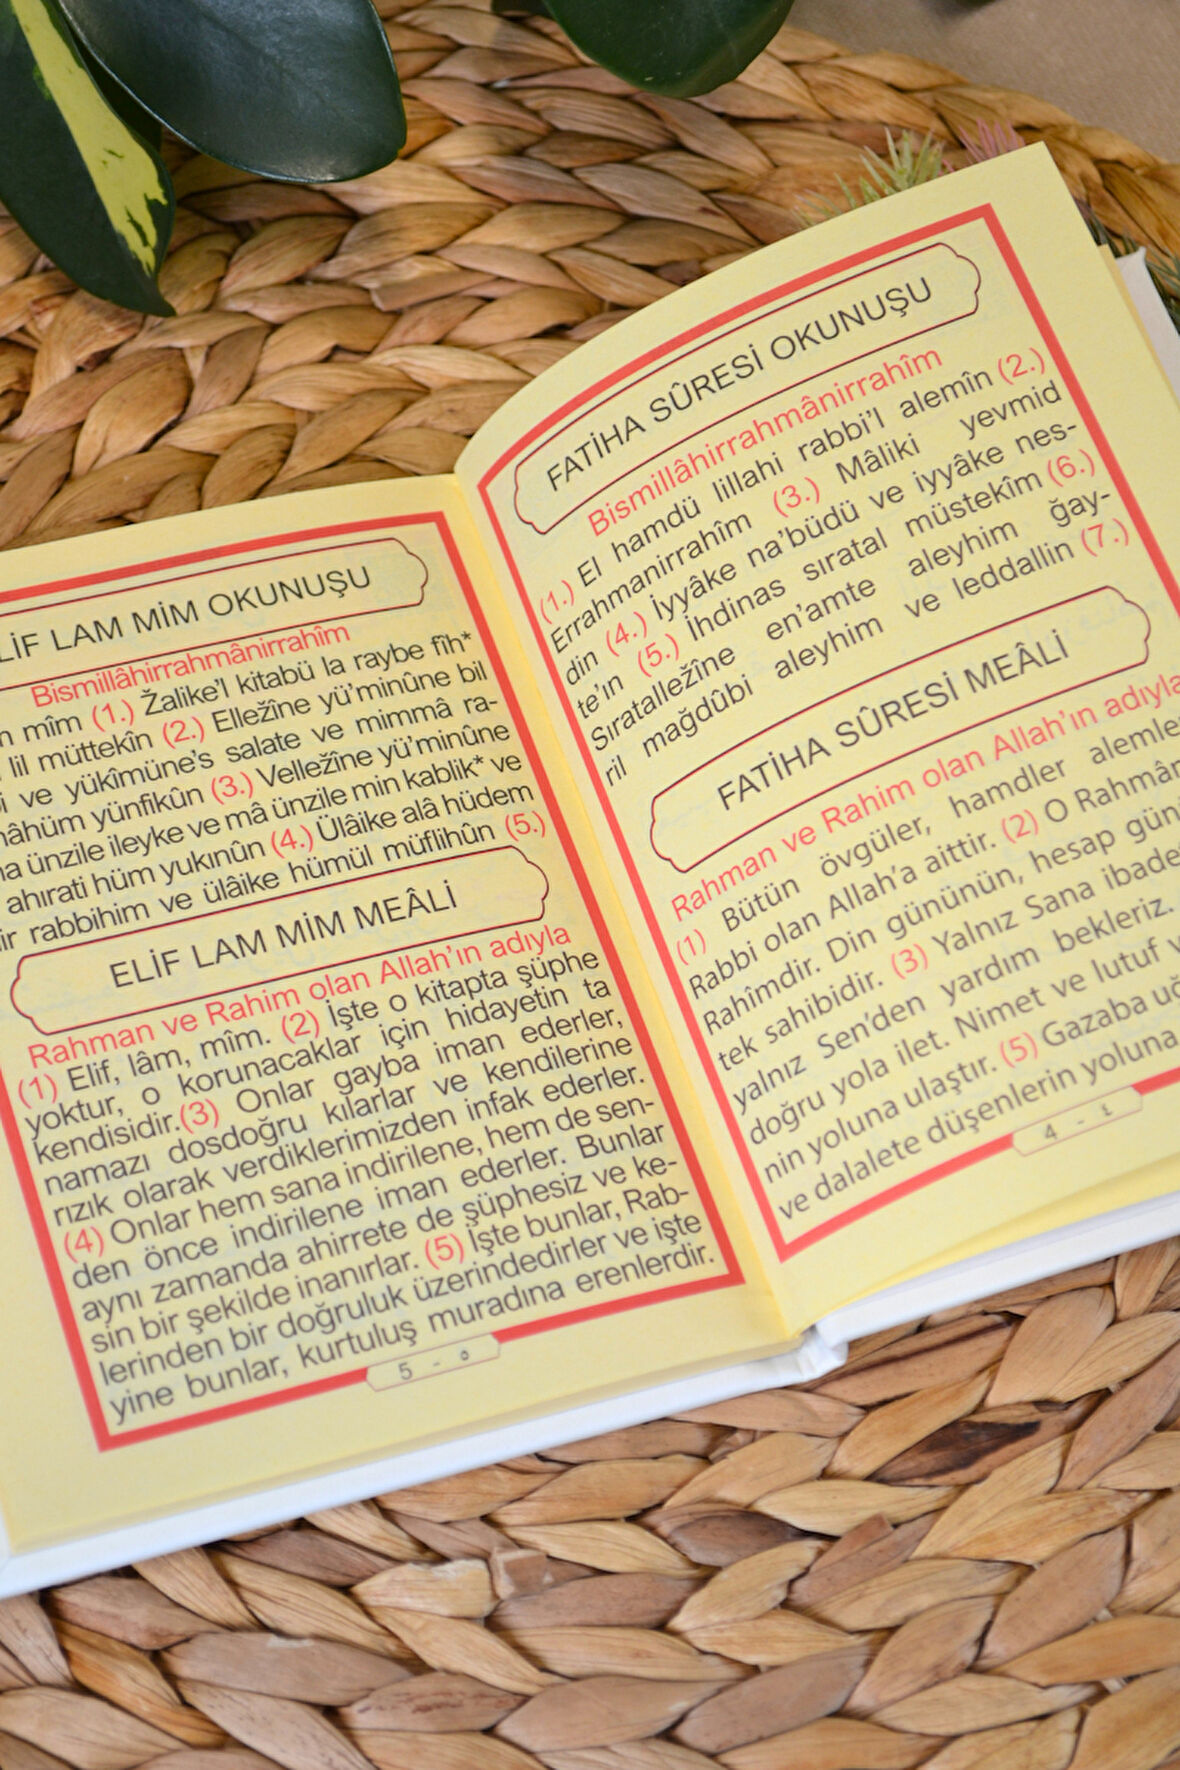 LİF LAM MİM OKUNUŞU
Bismillâhirrahmânirrahîm
mîm (1.) Žalike'l kitabü la raybe fîh*
lil müttekîn (2.) Elležîne yü'minûne bil
ve yükîmüne's salate ve mimmâ ra-
yünfikûn (3.) Velležîne yü'minûne
ünzile ileyke ve mâ ünzile min kablik* ve
ahırati hüm yukınûn (4.) Ülâike alâ hüdem
rabbihim ve ülâike hümül müflihûn (5.)
ELİF LAM MİM MEÂLİ
Rahman ve Rahim olan Allah'ın adıyla
(1) Elif, lâm, mîm. (2) İşte o kitapta şüphe
yoktur, o korunacaklar için hidayetin ta
kendisidir.(3) Onlar gayba iman ederler,
namazı dosdoğru kılarlar ve kendilerine
rızık olarak verdiklerimizden infak ederler.
(4) Onlar hem sana indirilene, hem de sen-
den önce indirilene iman ederler. Bunlar
aynı zamanda ahirrete de şüphesiz ve ke-
sin bir şekilde inanırlar. (5) İşte bunlar, Rab-
lerinden bir doğruluk üzerindedirler ve işte
yine bunlar, kurtuluş muradına erenlerdir.
5 - ٥
FATİHA SÛRESİ OKUNUŞU
Bismillâhirrahmânirrahîm
(1.) El hamdü lillahi rabbi'l alemîn (2.)
Errahmanirrahîm (3.) Mâliki yevmid
din (4.) İyyâke na'büdü ve iyyâke nes-
te'ın (5.) İhdinas sıratal müstekîm (6.)
Sıratalležîne en'amte aleyhim ğay-
ril mağdûbi aleyhim ve leddallin (7.)
FATİHA SÛRESİ MEÂLİ
Rahman ve Rahim olan Allah'ın adıyla
(1) Bütün övgüler, hamdler alemle
Rabbi olan Allah'a aittir. (2) O Rahmân
Rahîmdir. Din gününün, hesap gün
tek sahibidir. (3) Yalnız Sana ibade
yalnız Sen'den yardım bekleriz.
doğru yola ilet. Nimet ve lutuf
nin yoluna ulaştır. (5) Gazaba uğ
ve dalalete düşenlerin yoluna
4 - ٤